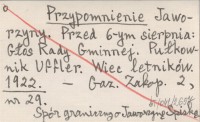 o
Przypomnienie Jawo-
rzyny. Przed 6-ym sierpnia:
Głos Rady Gminnej. Pułkow-
nik Uffler. Wiec letników.
1922. — Gaz. Zakop. 2,
nr 29.
Spór graniczny o Jaworzynę Spiską